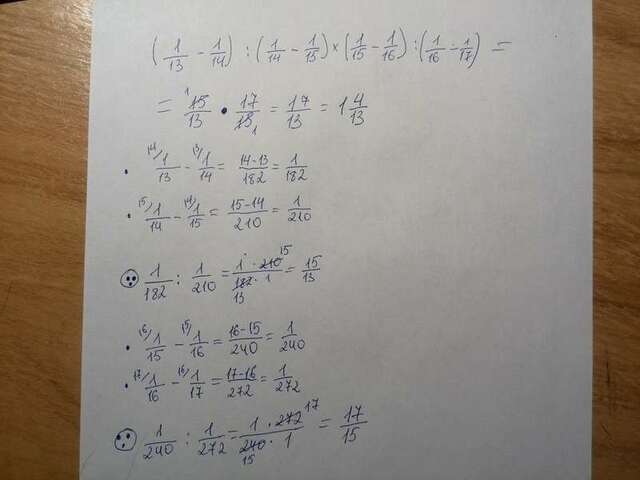 (1/13 - 1/14) : (1/14 - 1/15) × (1/15 - 1/16) : (1/16 - 1/17) =
= ¹15/13 • 17/15₁ = 17/13 = 1 4/13
• ¹⁴/1/13 - ¹³/1/14 = 14-13/182 = 1/182
• ¹⁵/1/14 - ¹⁴/1/15 = 15-14/210 = 1/210
1/182 : 1/210 = 1 · 210 15/182 · 1 13 = 15/13
• ¹⁶/1/15 - ¹⁵/1/16 = 16-15/240 = 1/240
• ¹⁷/1/16 - ¹⁶/1/17 = 17-16/272 = 1/272
1/240 : 1/272 = 1 · 272 17/240 · 1 15 = 17/15